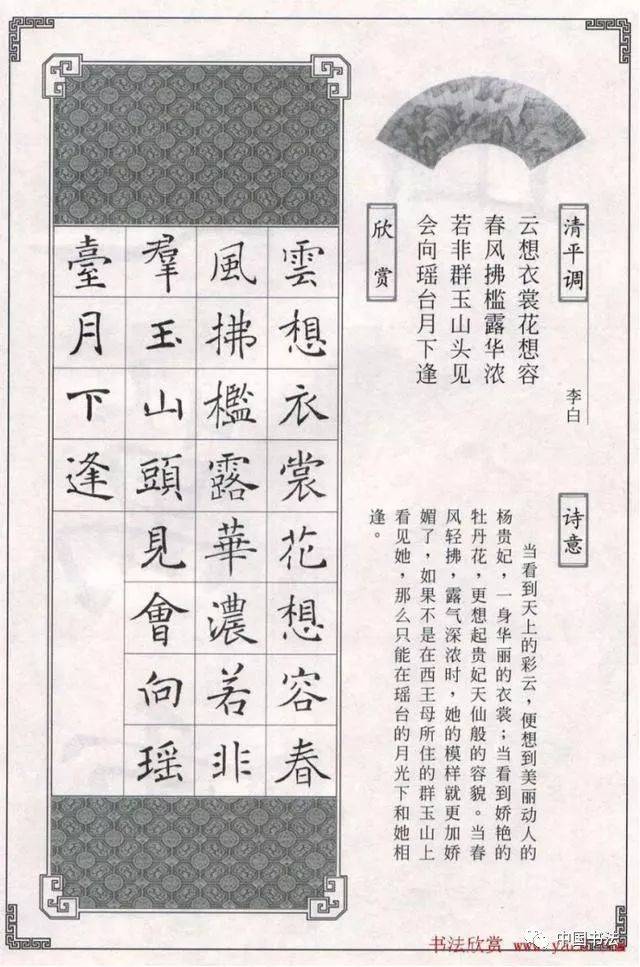 清平调
李白
云想衣裳花想容
春风拂槛露华浓
若非群玉山头见
会向瑶台月下逢
诗意
当看到天上的彩云，便想到美丽动人的
杨贵妃，一身华丽的衣裳；当看到娇艳的
牡丹花，更想起贵妃天仙般的容貌。当春
风轻拂，露气深浓时，她的模样就更加娇
媚了，如果不是在西王母所住的群玉山上
看见她，那么只能在瑶台的月光下和她相
逢。
欣赏
雲想衣裳花想容春
風拂檻露華濃若非
羣玉山頭見會向瑶
臺月下逢
书法欣赏
中国书法